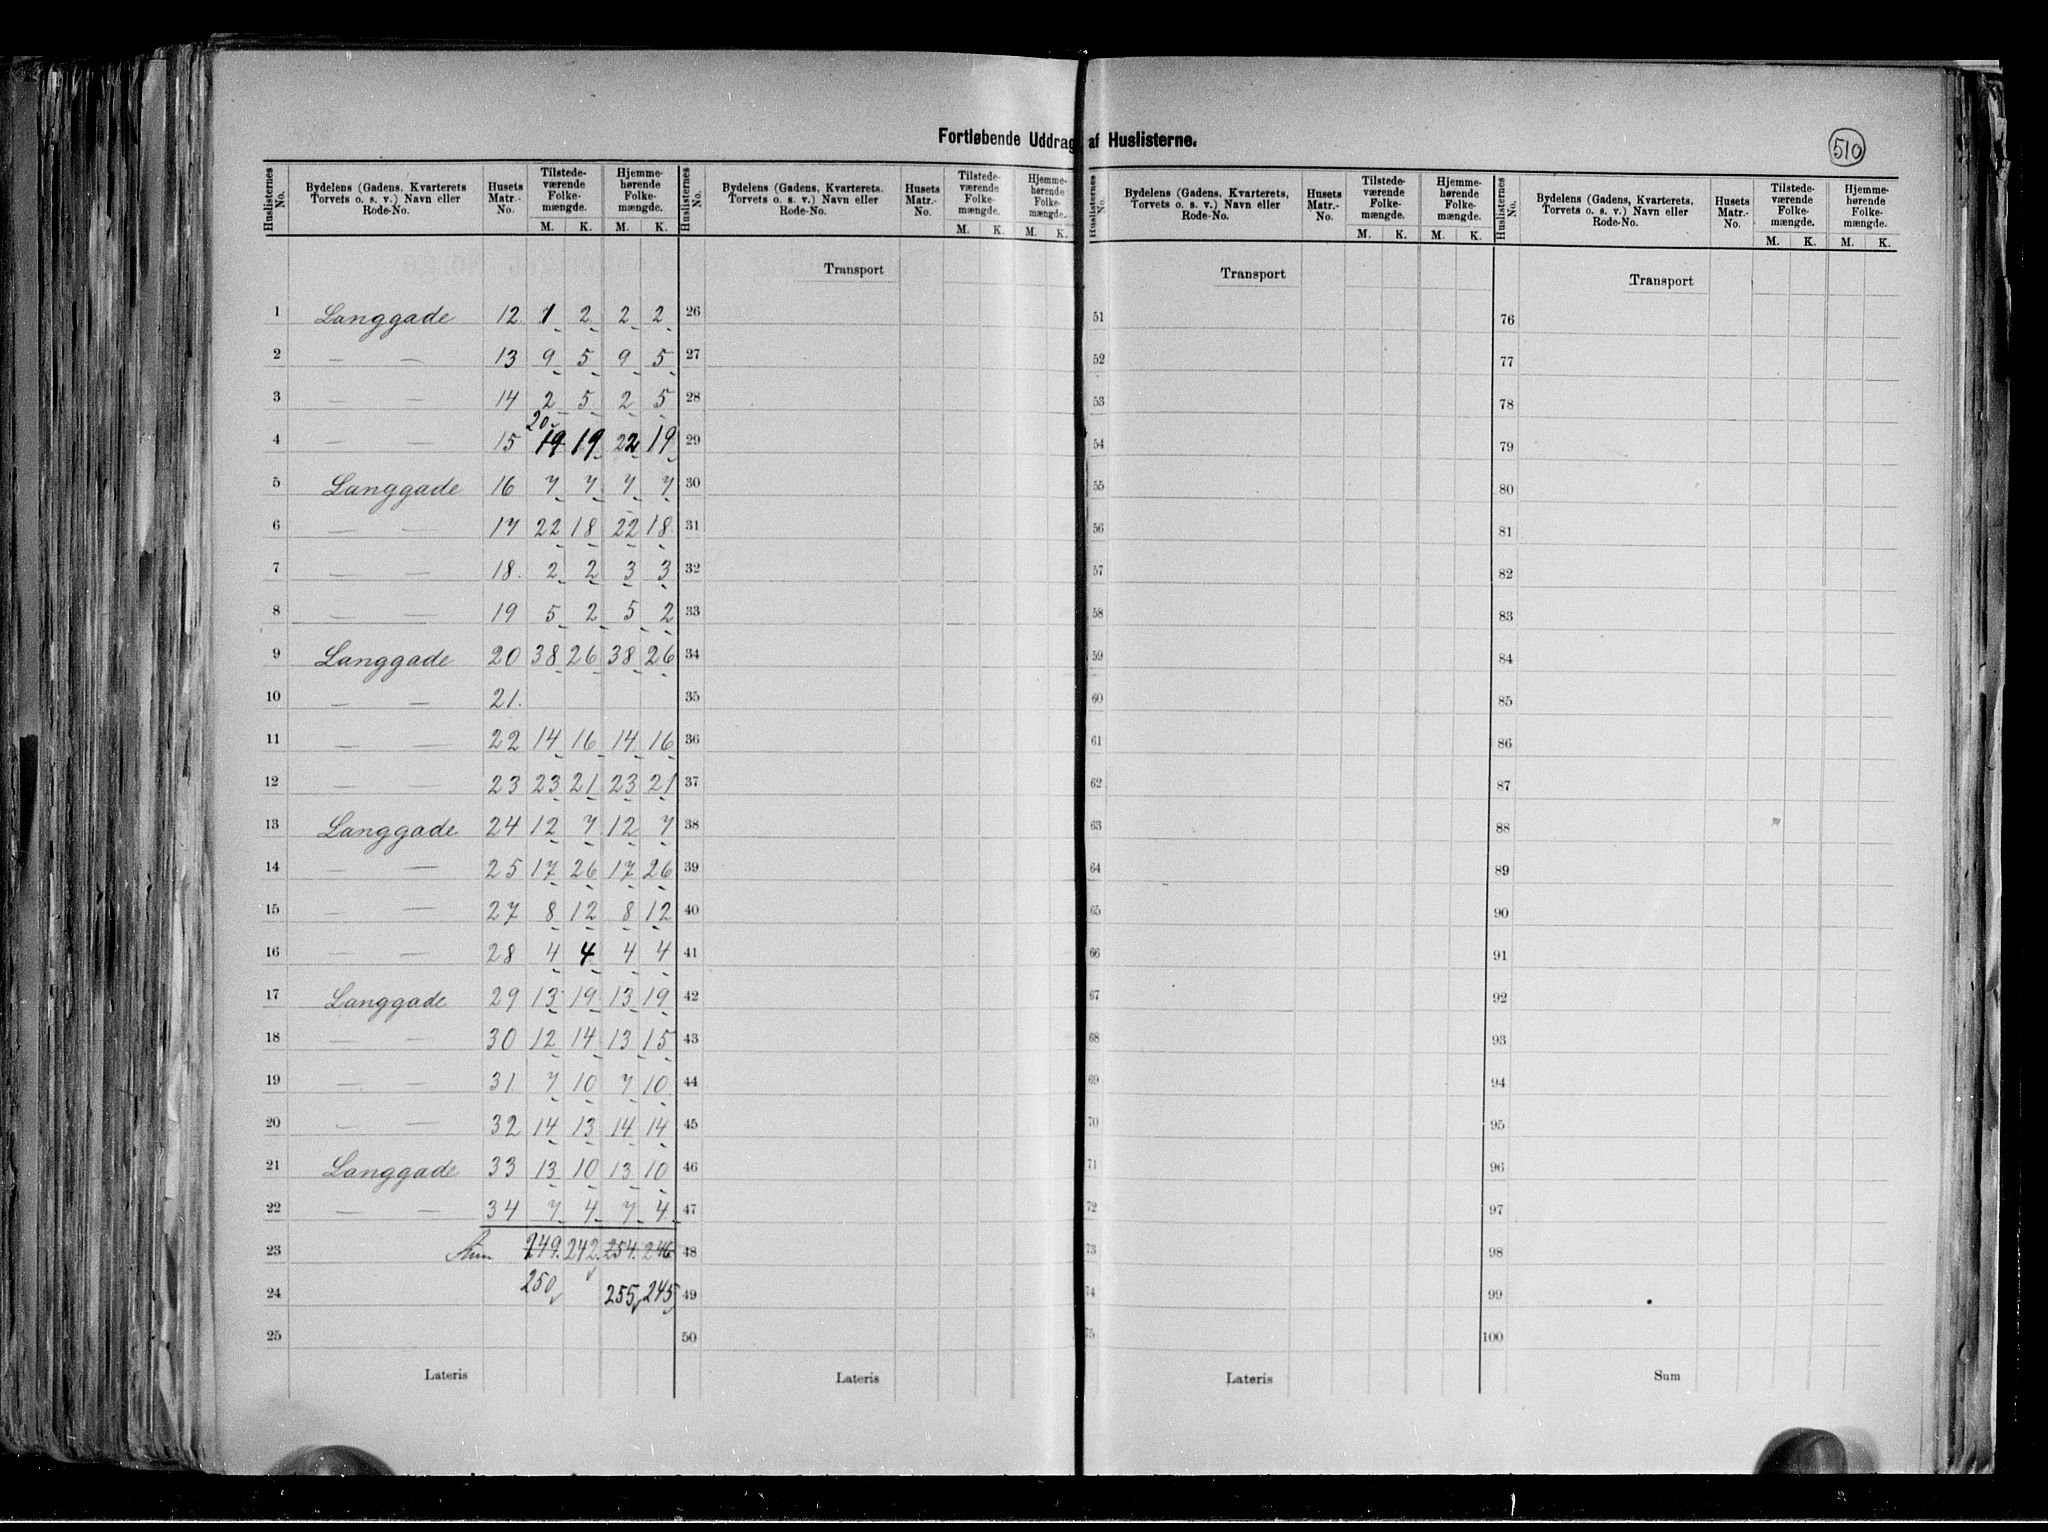 Fortløbende Uddrag af Huslisterne.
510
Huslisternes No. | Bydelens (Gadens, Kvarterets Torvets o. s. v.) Navn eller Rode-No. | Husets Matr.-No. | Tilstedeværende Folkemængde. M. K. | Hjemmehørende Folkemængde. M. K.
1 Langgade 12. 1 2 2 2
2 — — 13 9 5 9 5
3 — — 14 2 5 2 5
20
4 — — 15 19 19 22 19
5 Langgade 16 7 7 7 7
6 — — 17 22 18 22 18
7 — — 18. 2 2 3 3
8 — — 19 5 2 5 2
9 Langgade 20 38 26 38 26
10 — — 21.
11 — — 22 14 16 14 16
12 23 23 21 23 21
13 Langgade 24 12 7 12 7
14 — — 25 17 26 17 26
15 — — 27 8 12 8 12
16 — — 28 4 4 4 4
17 Langgade 29 13 19 13 19
18 — — 30 12 14 13 15
19 — — 31 7 10 7 10
20 — — 32 14 13 14 14
21 Langgade 33 13 10 13 10
22 — — 34 7 4 7 4
23 Sum 249. 242. 254. 246
24 250 255 245
25
Lateris
Huslisternes No. | Bydelens (Gadens, Kvarterets, Torvets o. s. v.) Navn eller Rode-No. | Husets Matr.-No. | Tilstedeværende Folkemængde. M. K. | Hjemmehørende Folkemængde. M. K.
Transport
26
27
28
29
30
31
32
33
34
35
36
37
38
39
40
41
42
43
44
45
46
47
48
49
50
Lateris
Huslisternes No. | Bydelens (Gadens, Kvarterets, Torvets o. s. v.) Navn eller Rode-No. | Husets Matr.-No. | Tilstedeværende Folkemængde. M. K. | Hjemmehørende Folkemængde. M. K.
Transport
51
52
53
54
55
56
57
58
59
60
61
62
63
64
65
66
67
68
69
70
71
72
73
74
75
Lateris
Huslisternes No. | Bydelens (Gadens, Kvarterets, Torvets o. s. v.) Navn eller Rode-No. | Husets Matr.-No. | Tilstedeværende Folkemængde. M. K. | Hjemmehørende Folkemængde. M. K.
Transport
76
77
78
79
80
81
82
83
84
85
86
87
88
89
90
91
92
93
94
95
96
97
98
99
100
Sum